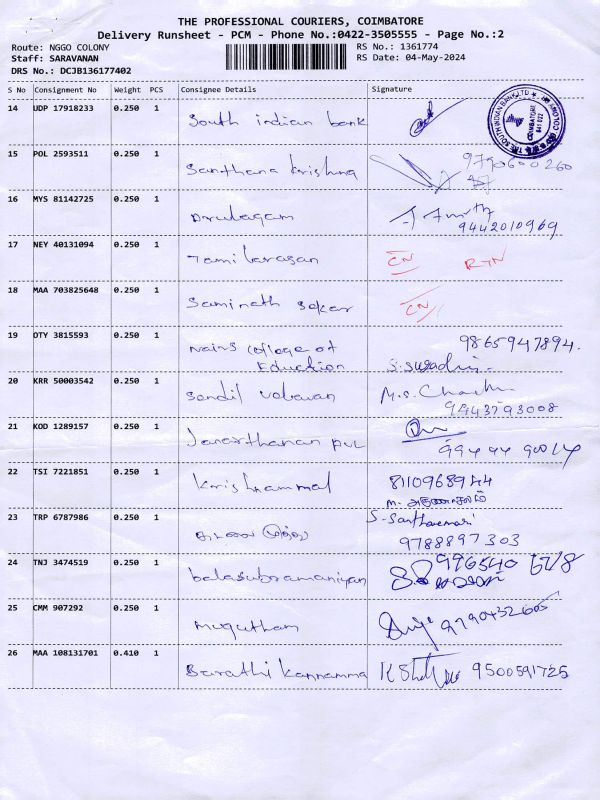 THE PROFESSIONAL COURIERS, COIMBATORE
Delivery Runsheet - PCM - Phone No.:0422-3505555 - Page No.:2
Route: NGGO COLONY
RS No.: 1361774
Staff: SARAVANAN
RS Date: 04-May-2024
DRS No.: DCJB136177402
S No Consignment No Weight PCS Consignee Details Signature
14 UDP 17918233 0.250 1 South indian bank
THE SOUTH INDIAN BANK LTD COIMBATORE 641 022
15 POL 2593511 0.250 1 Santhana krishna
16 MYS 81142725 0.250 1 9442010969
17 NEY 40131094 0.250 1 Tamilarasan CN RTN
18 MAA 703825648 0.250 1 Saminath CN
19 OTY 3815593 0.250 1 College of Education 9865947894.
20 KRR 50003542 0.250 1 9943793008
21 KOD 1289157 0.250 1 Janarthanan
22 TSI 7221851 0.250 1 Krishnammal 8110968944
M. அருணாசலம்
23 TRP 6787986 0.250 1 9788897303
24 TNJ 3474519 0.250 1 balasubramaniyan
25 CMM 907292 0.250 1
26 MAA 108131701 0.410 1 Barathi kannamma 9500591725